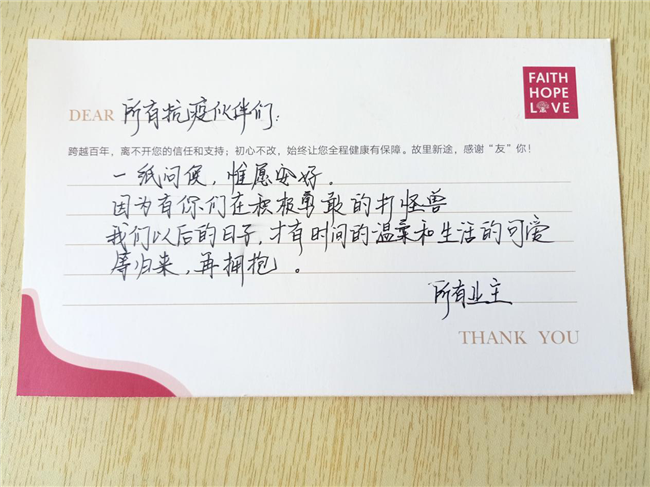 FAITH
HOPE
L VE
DEAR 所有抗疫伙伴们：
跨越百年，离不开您的信任和支持；初心不改，始终让您全程健康有保障。故里新途，感谢“友”你！
一纸问候，惟愿安好。
因为有你们在积极勇敢的打怪兽
我们以后的日子，才有时间的温柔和生活的可爱
等归来，再拥抱。
所有业主
THANK YOU